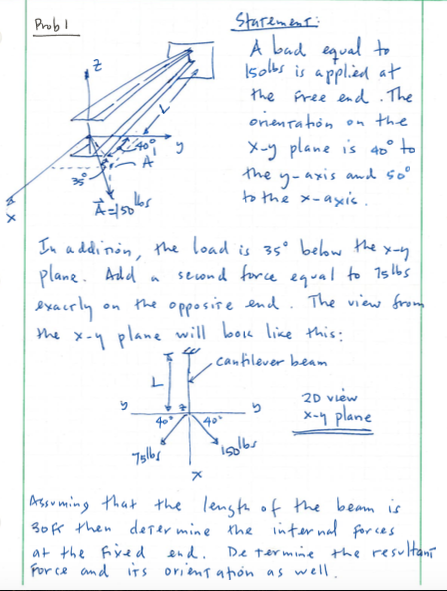 Prob 1
Statement:
A load equal to
150lbs is applied at
the free end. The
orientation on the
x-y plane is 40° to
the y-axis and 50°
to the x-axis.
z
L
40°
y
A'
35°
x
A=150 lbs
In addition, the load is 35° below the x-y
plane. Add a second force equal to 75lbs
exactly on the opposite end. The view from
the x-y plane will look like this:
cantilever beam
L
y
z
y
40°
40°
75lbs
150lbs
x
2D view
x-y plane
Assuming that the length of the beam is
30ft then determine the internal forces
at the fixed end. Determine the resultant
force and its orientation as well.